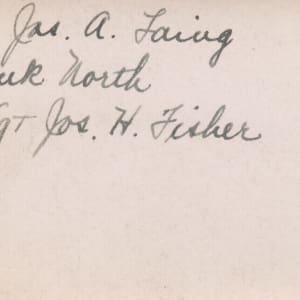 Jas. A. Laing
North
Jos. H. Fisher